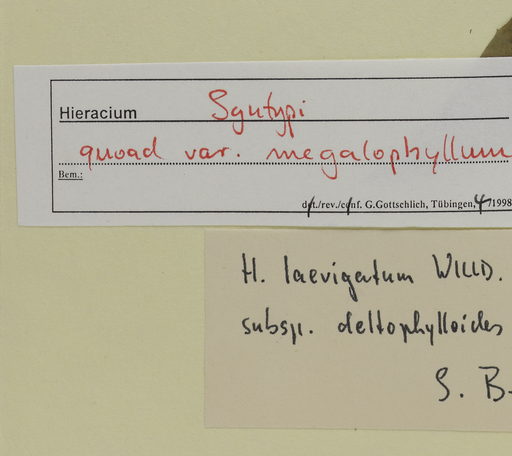 Hieracium Syntypi
quoad var. megalophyllum
Bem.:
det./rev./conf. G.Gottschlich, Tübingen, 4/1998
H. laevigatum WILLD.
subsp. deltophylloides
S. B.